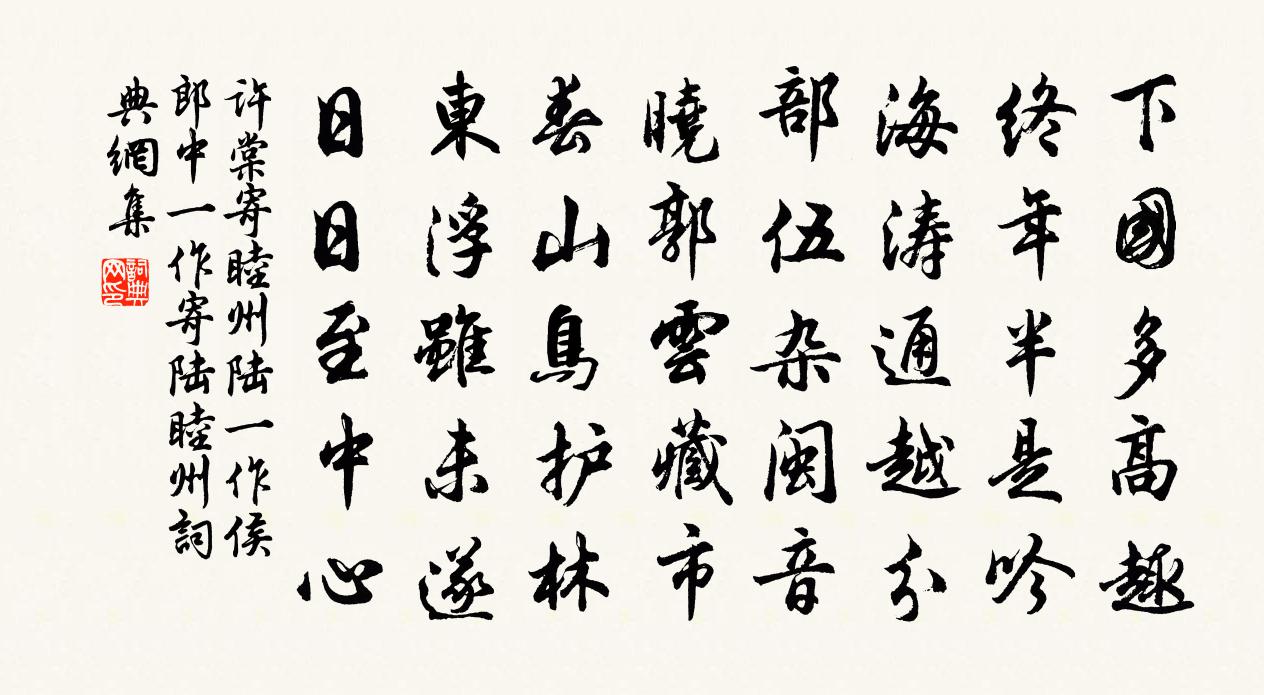 下國多高趣
終年半是吟
海涛通越分
部伍杂闽音
曉郭雲藏市
春山鳥护林
東浮雖未遂
日日至中心
許棠寄睦州陆一作侯
郎中一作寄陆睦州詞
典網集
詞典
网印